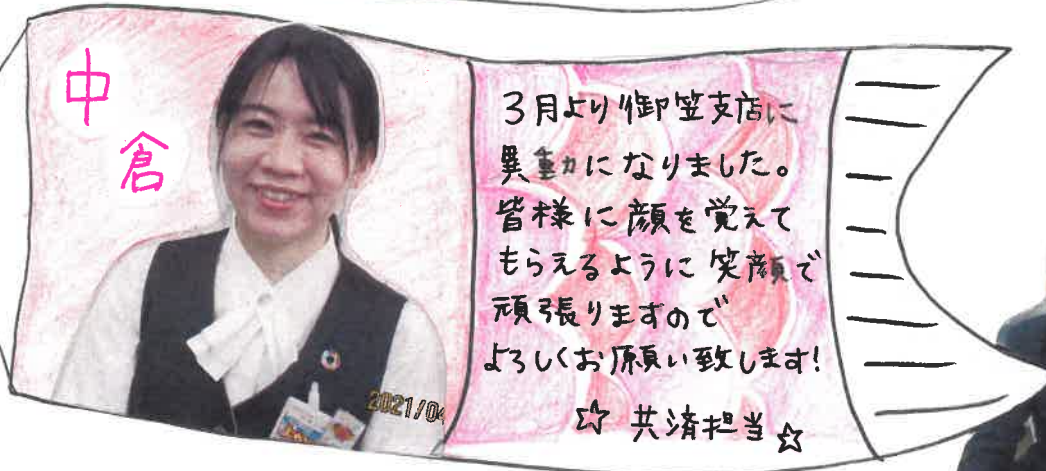 中倉
3月より御笠支店に
異動になりました。
皆様に顔を覚えて
もらえるように笑顔で
頑張りますので
よろしくお願い致します!
☆ 共済担当 ☆
2021/04